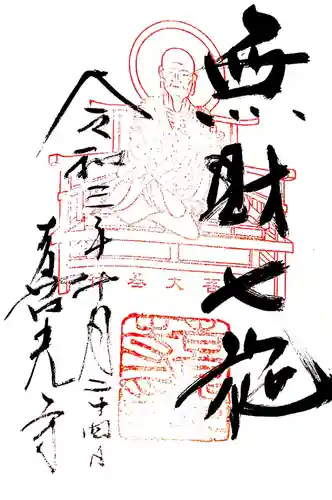 無財七施
令和三年十月二十四日
喜光寺
基大菩